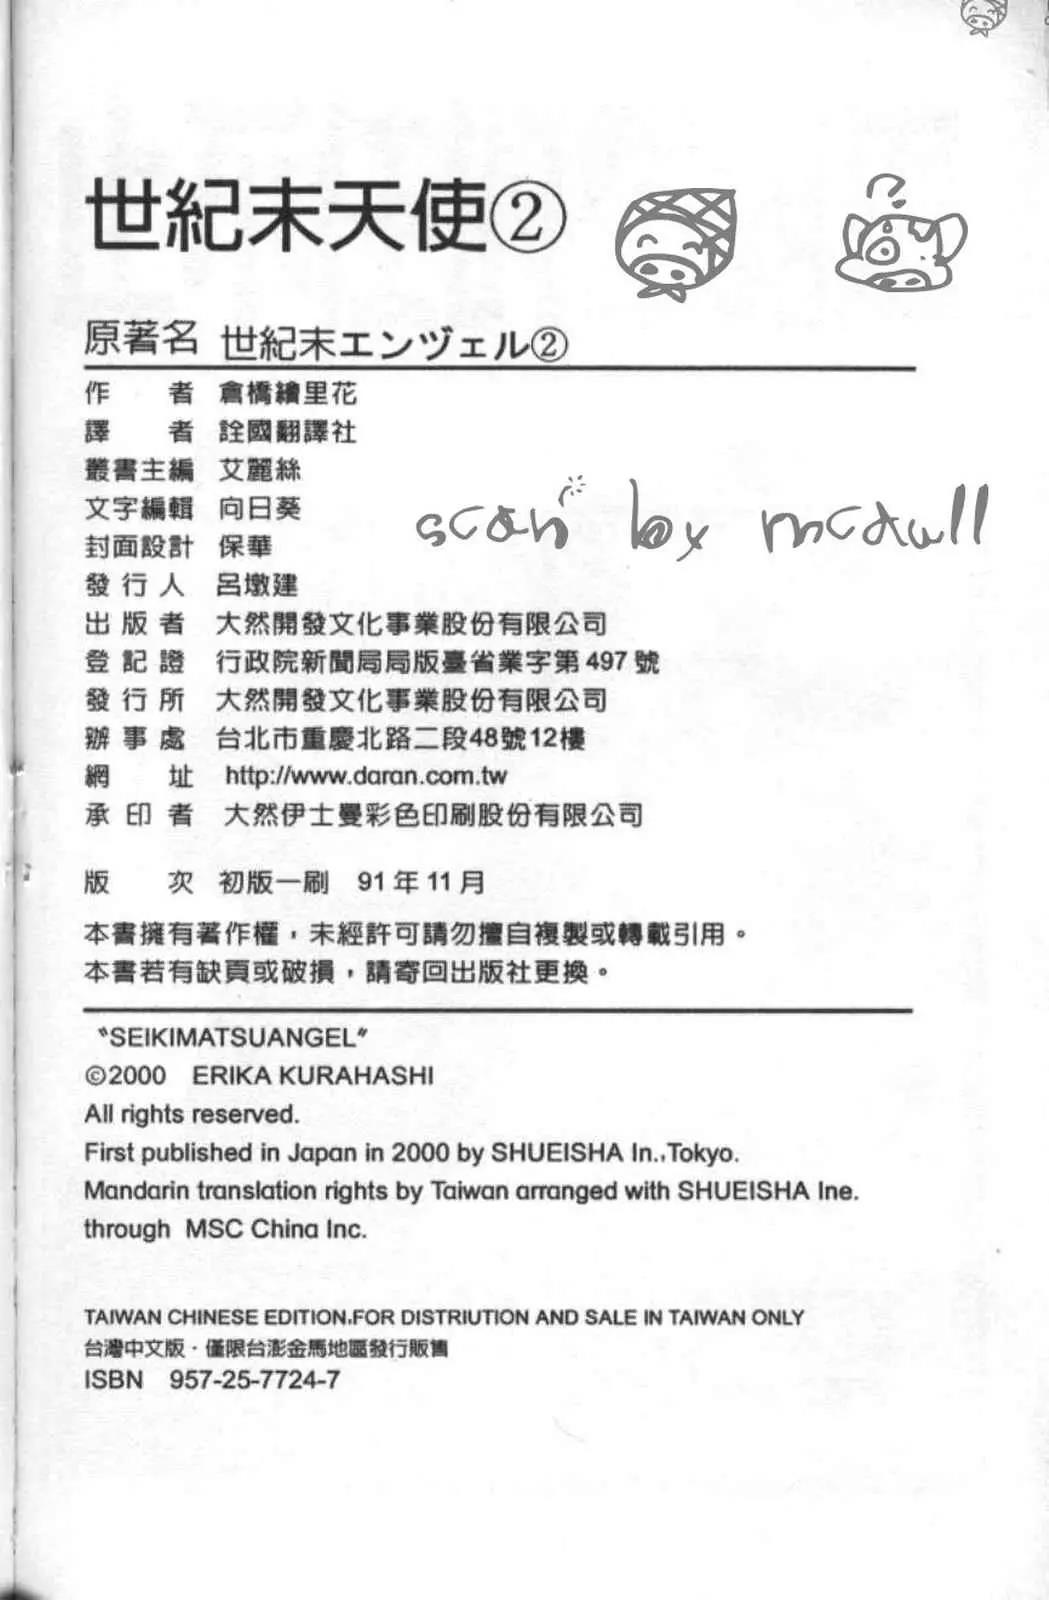 世紀末天使②
原著名 世紀末エンヅェル②
作者 倉橋繪里花
譯者 詮國翻譯社
叢書主編 艾麗絲
文字編輯 向日葵
封面設計 保華
scan by mcdull
發行人 呂墩建
出版者 大然開發文化事業股份有限公司
登記證 行政院新聞局局版臺省業字第497號
發行所 大然開發文化事業股份有限公司
辦事處 台北市重慶北路二段48號12樓
網址 http://www.daran.com.tw
承印者 大然伊士曼彩色印刷股份有限公司
版次 初版一刷 91年11月
本書擁有著作權，未經許可請勿擅自複製或轉載引用。
本書若有缺頁或破損，請寄回出版社更換。
〝SEIKIMATSUANGEL〞
©2000 ERIKA KURAHASHI
All rights reserved.
First published in Japan in 2000 by SHUEISHA In.,Tokyo.
Mandarin translation rights by Taiwan arranged with SHUEISHA Ine.
through MSC China Inc.
TAIWAN CHINESE EDITION,FOR DISTRIUTION AND SALE IN TAIWAN ONLY
台灣中文版·僅限台澎金馬地區發行販售
ISBN 957-25-7724-7